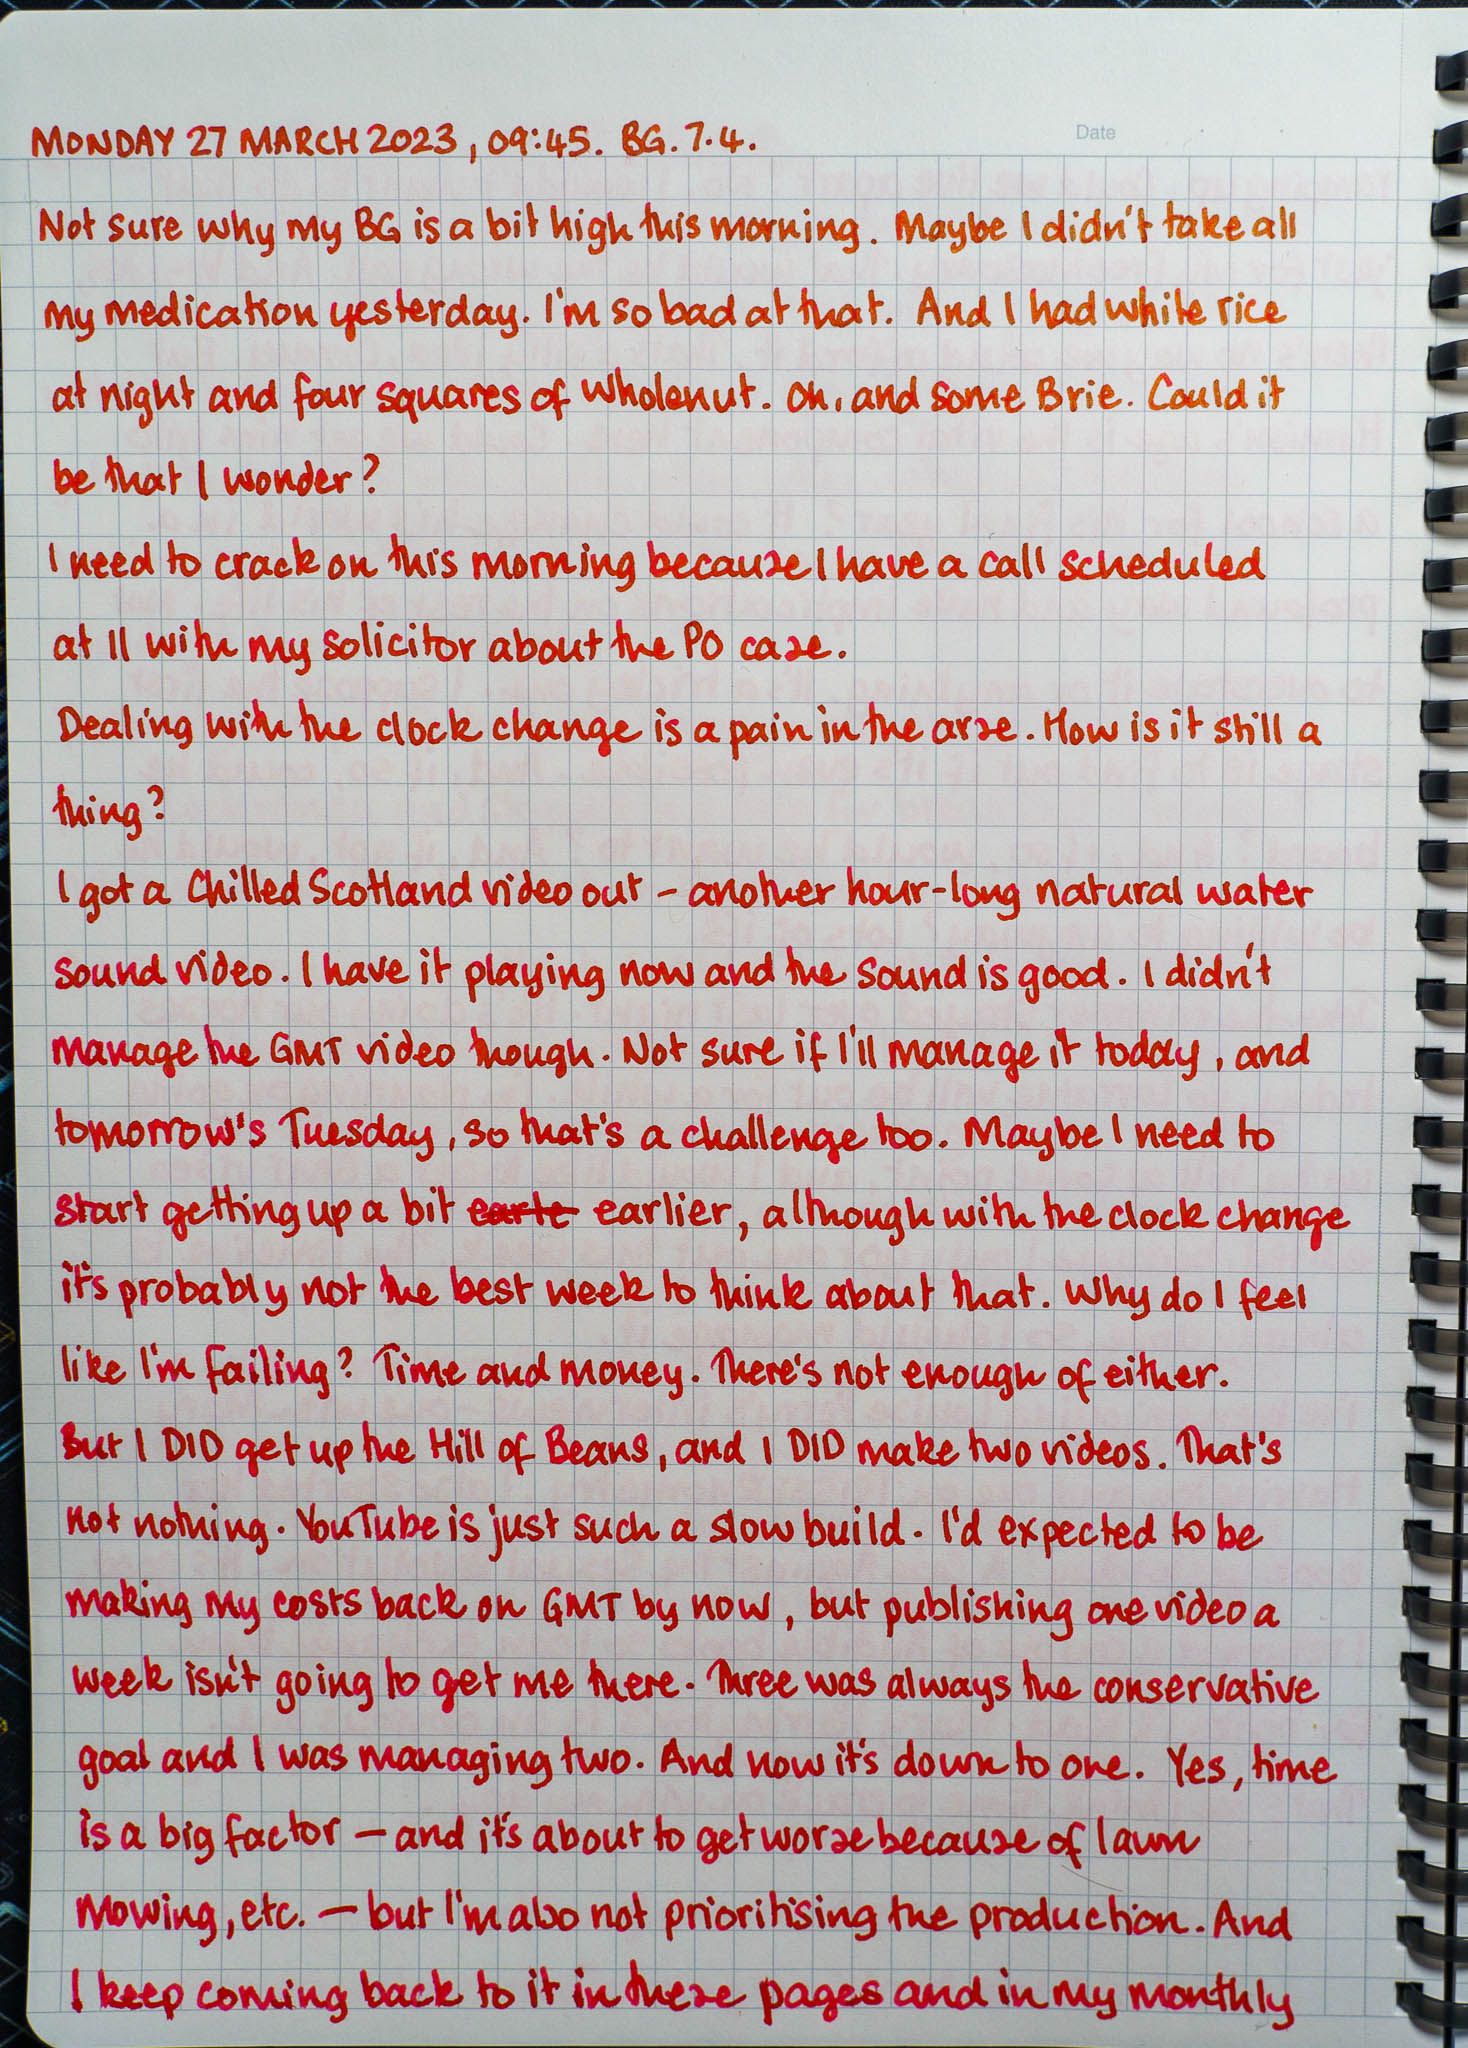 Date
MONDAY 27 MARCH 2023, 09:45. BG. 7.4.
Not sure why my BG is a bit high this morning. Maybe I didn't take all
my medication yesterday. I'm so bad at that. And I had white rice
at night and four squares of Wholenut. Oh, and some Brie. Could it
be that I wonder?
I need to crack on this morning because I have a call scheduled
at 11 with my solicitor about the PO case.
Dealing with the clock change is a pain in the arse. How is it still a
thing?
I got a Chilled Scotland video out – another hour-long natural water
sound video. I have it playing now and the sound is good. I didn't
manage the GMT video though. Not sure if I'll manage it today, and
tomorrow's Tuesday, so that's a challenge too. Maybe I need to
start getting up a bit earle earlier, although with the clock change
it's probably not the best week to think about that. Why do I feel
like I'm failing? Time and money. There's not enough of either.
But I DID get up the Hill of Beans, and I DID make two videos. That's
not nothing. YouTube is just such a slow build. I'd expected to be
making my costs back on GMT by now, but publishing one video a
week isn't going to get me there. Three was always the conservative
goal and I was managing two. And now it's down to one. Yes, time
is a big factor – and it's about to get worse because of lawn
mowing, etc. – but I'm also not prioritising the production. And
I keep coming back to it in these pages and in my monthly